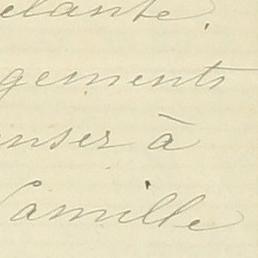 elante.
gements
nser à
Camille